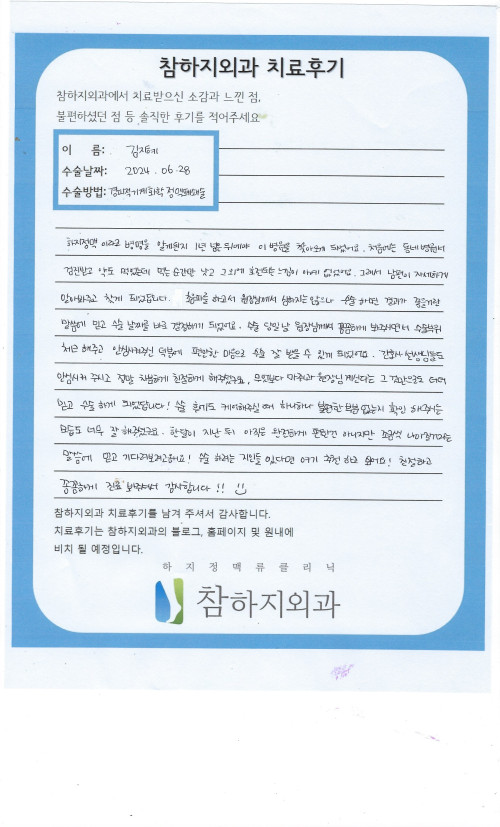 참하지외과 치료후기
참하지외과에서 치료받으신 소감과 느낀 점,
불편하셨던 점 등 솔직한 후기를 적어주세요
이 름: 김지혜
수술날짜: 2024. 06. 28
수술방법: 경피적기계화학 정맥폐쇄술
하지정맥 이라고 병명을 알게된지 1년 넘은 뒤에야 이 병원을 찾아오게 되었어요. 처음에는 동네 병원서
검진받고 약도 먹었는데 먹는 순간만 낫고 그 외에 호전되는 느낌이 아예 없었어요. 그래서 남편이 자세하게
알아봐주고 찾게 되었답니다. 초음파를 하고서 원장님께서 심하지는 않으나 수술 하면 결과가 좋을거란
말씀에 믿고 수술 날짜를 바로 결정하게 되었어요. 수술 당일 날 원장님께서 꼼꼼하게 봐주시면서 수술부위
체크 해주고 안심시켜주신 덕분에 편안한 마음으로 수술 잘 받을 수 있게 되었어요. 간호사 선생님들도
안심시켜 주시고 정말 차분하게 친절하게 해주셨구요, 무엇보다 마취과 원장님 계신다는 그 점만으로도 더더
믿고 수술 하게 되었답니다! 수술 후에도 케어해주실 때 하나하나 불편한 부분 없는지 확인 해주시는
부분도 너무 잘 해주셨구요. 한달이 지난 뒤 아직은 완전하게 편한건 아니지만 조금씩 나아질거라는
말씀에 믿고 기다려보려고해요! 수술 하려는 지인들 있다면 여기 추천 하고 싶어요! 친절하고
꼼꼼하게 진료 봐주셔서 감사합니다!!
참하지외과 치료후기를 남겨 주셔서 감사합니다.
치료후기는 참하지외과의 블로그, 홈페이지 및 원내에
비치 될 예정입니다.
하지정맥류클리닉
참하지외과